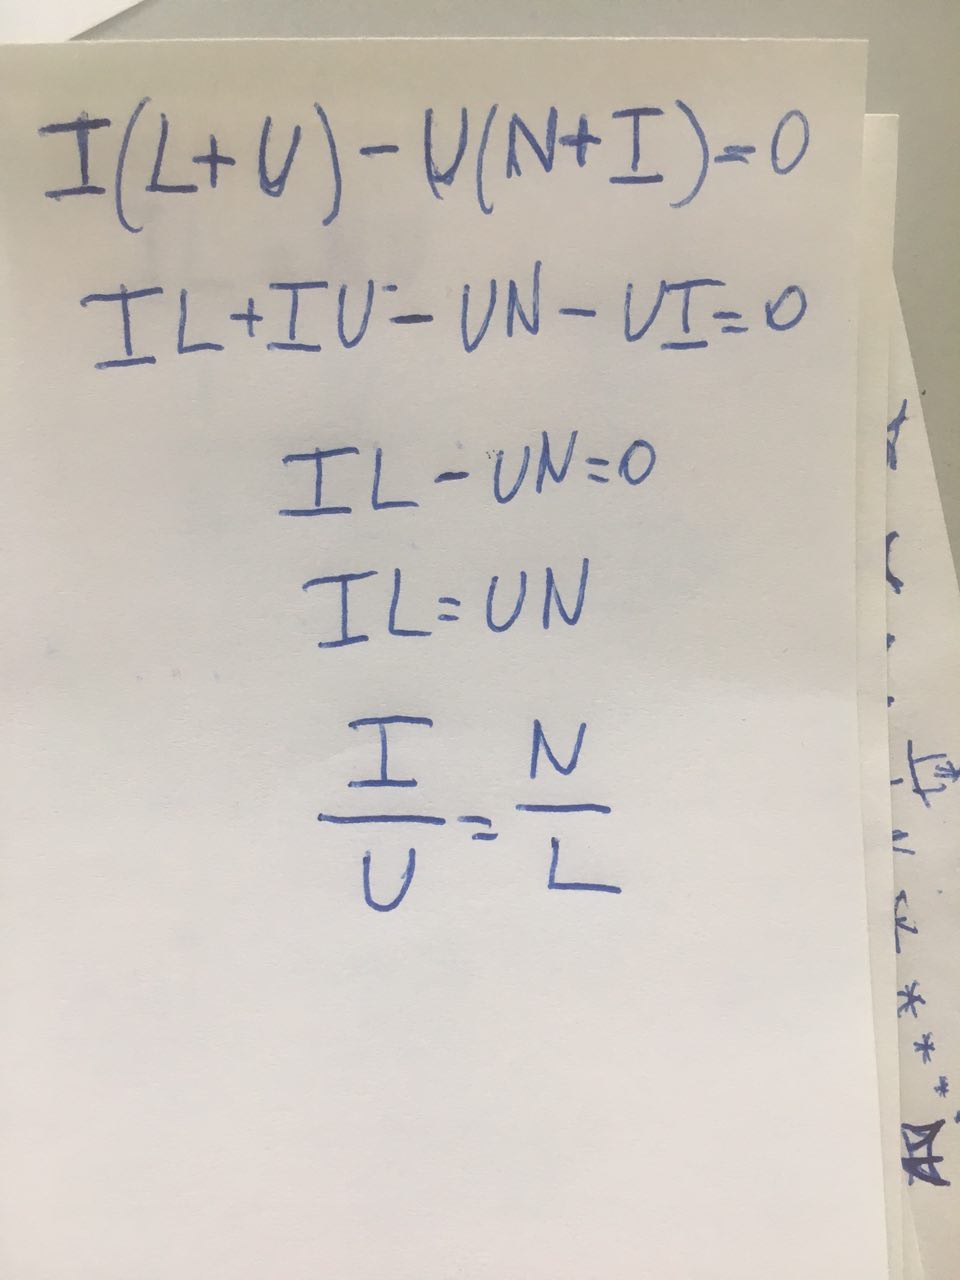 I(L+U)-U(N+I)=0
IL+IU-UN-UI=0
IL-UN=0
IL=UN
I/U=N/L